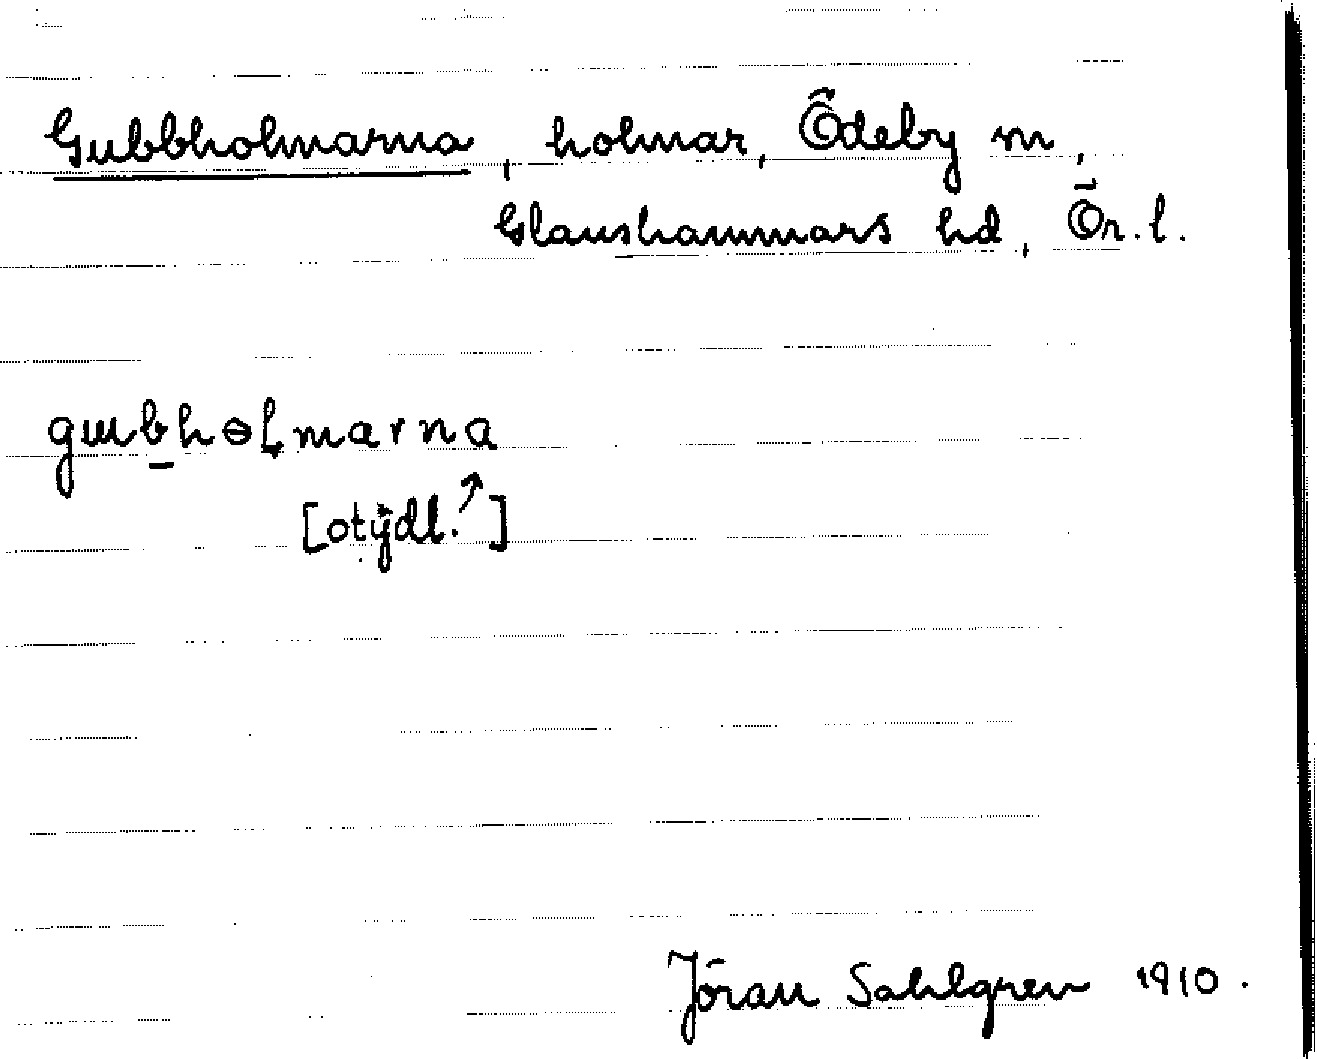 Gubbholmarna, holmar, Ödeby sn,
Glanshammars hd, Ör. l.
gɯb̲hɵɫmarna
[otydl.↗]
Jöran Sahlgren 1910.